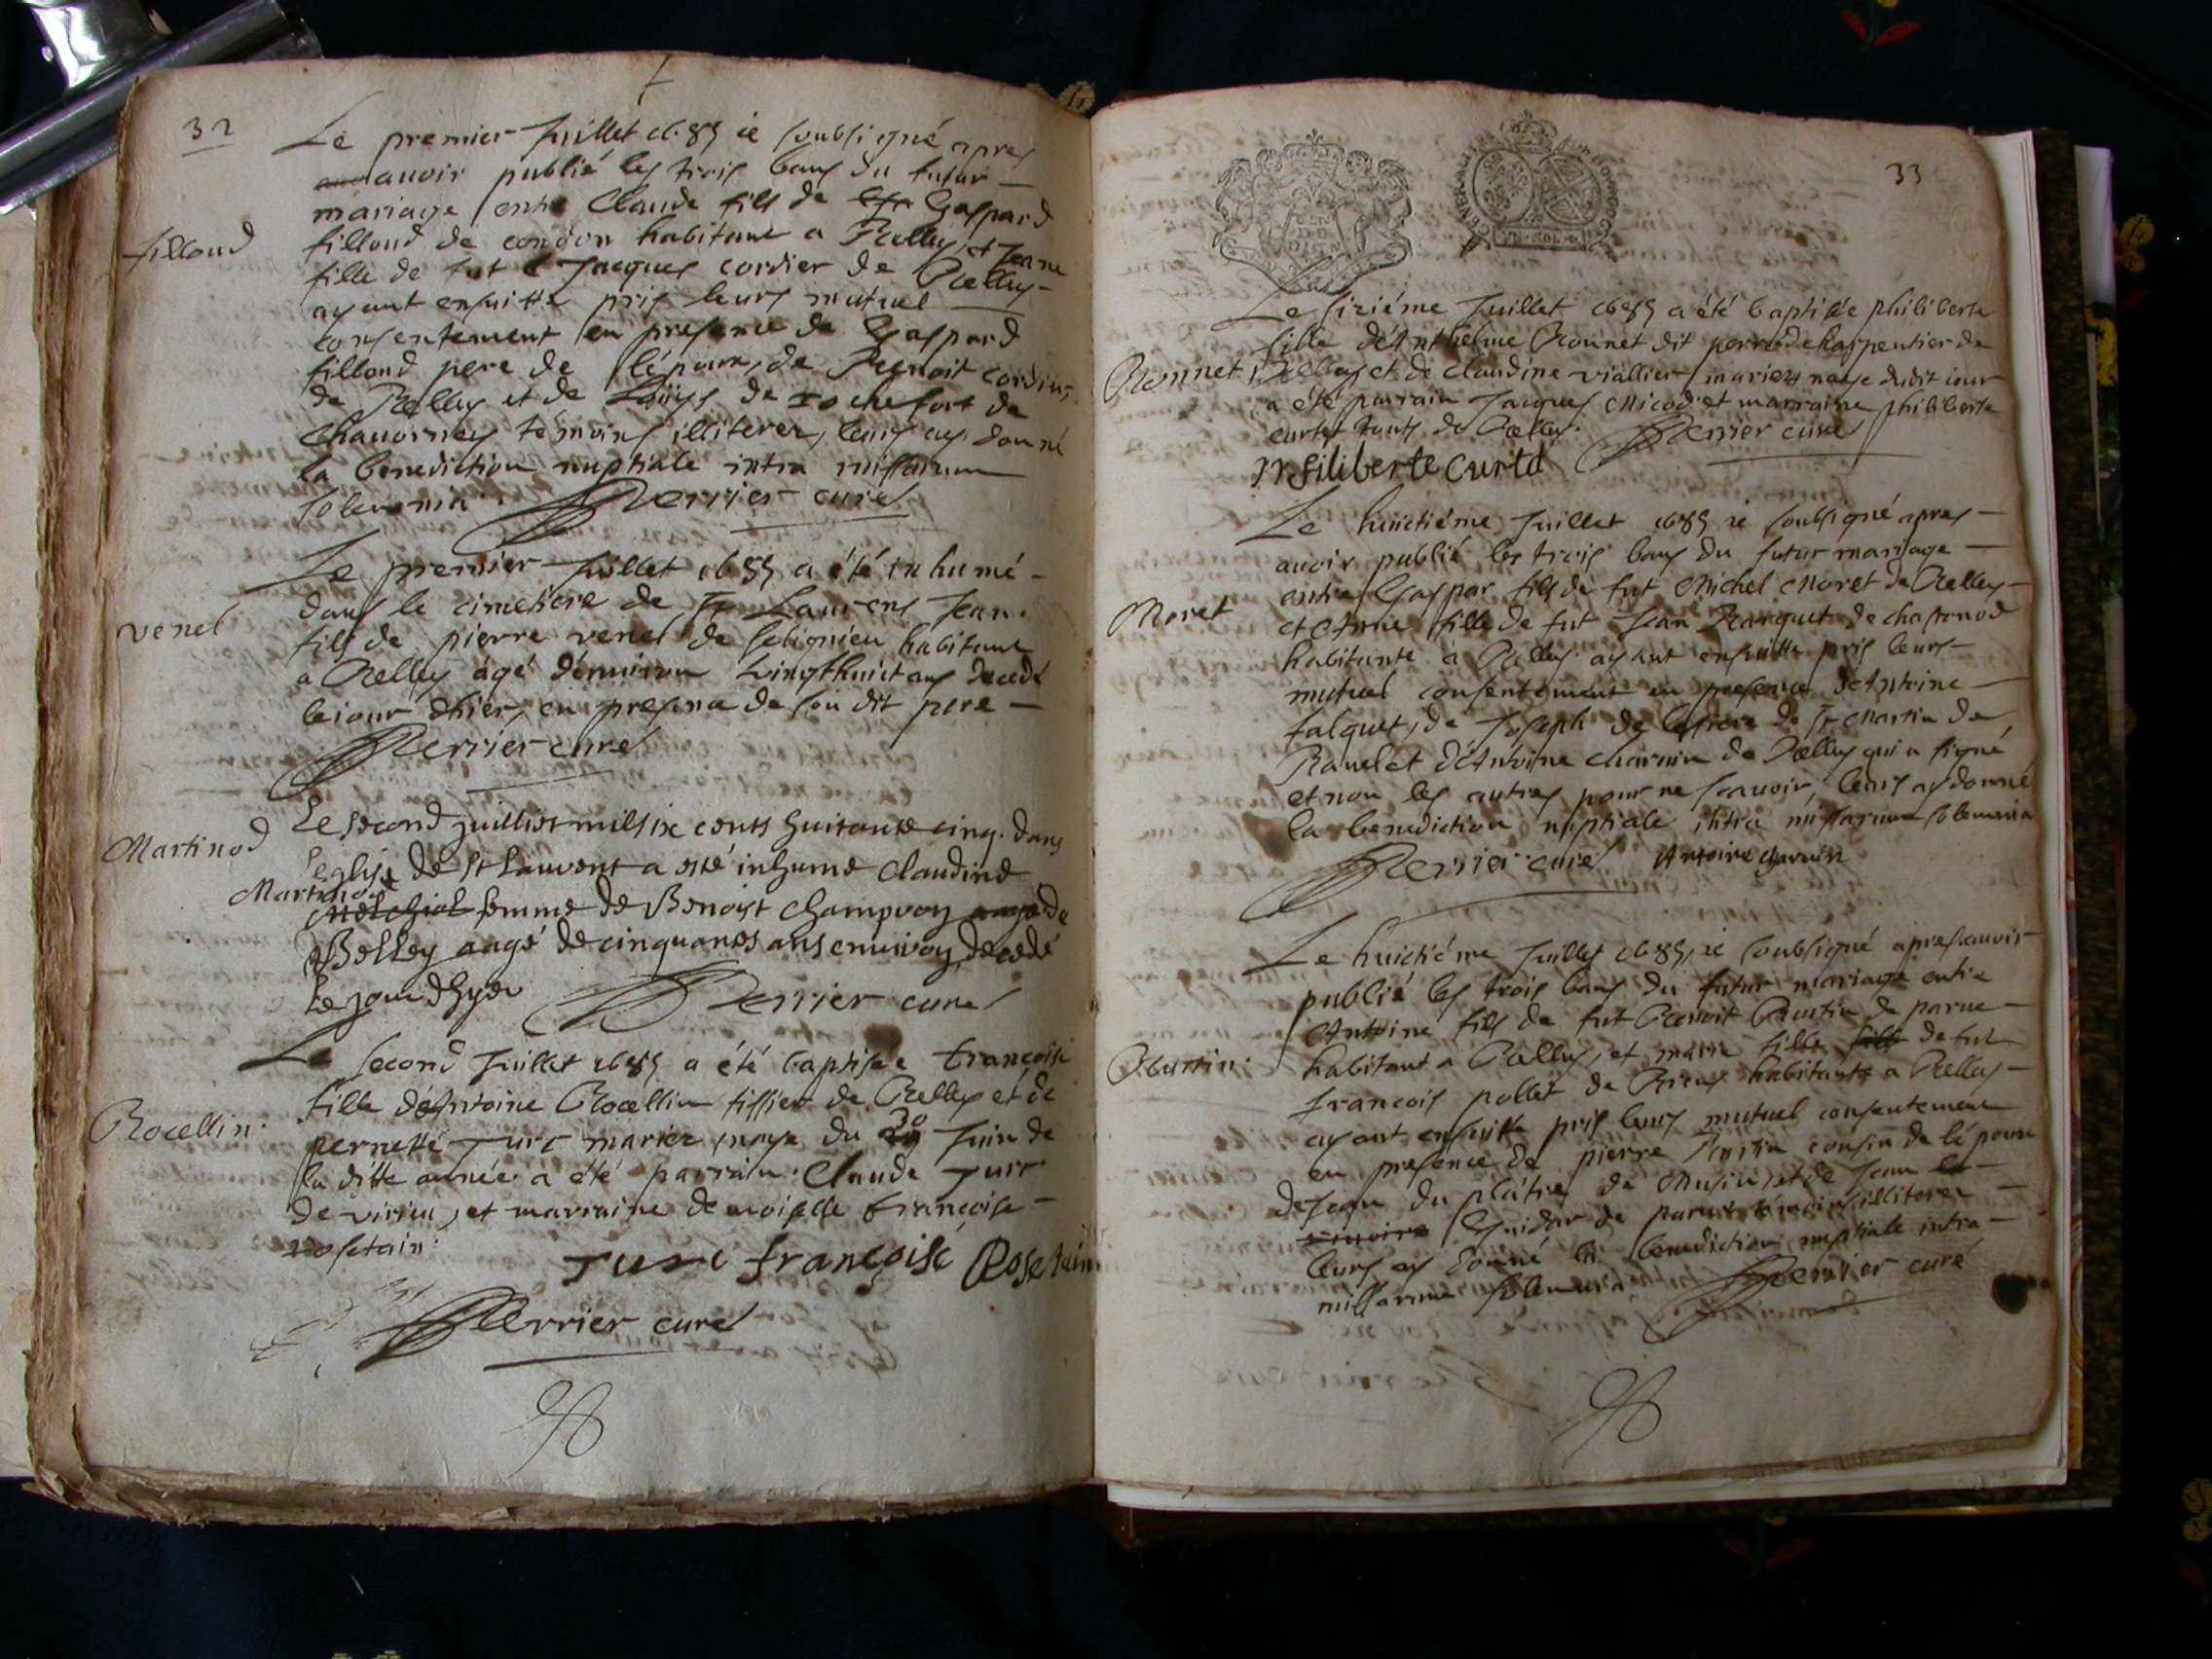 32
Le premier Juillet 1685 ie soubsigné apres
auoir publié les trois bans du futur
mariage entre Claude fils de Gaspard
fillond
fillond de condon habitant a Belley, et Jeane
fille de fut Jacques cordier de Belley
ayant ensuitte pris leurs mutuel
consentement en presence de Gaspard
fillond pere de lépoux, de Benoit cordier
de Belley et de Louys de rochefort de
chauorney témoins illiterez, leurs ay donné
la benediction nuptiale intra missarum
solemnia. Perrier curé
Le premier Juillet 1685 a été inhumé
dans le cimetiere de St Laurens Jean
venel
fils de pierre venel de solignieu habitant
a Belley âgé d'enuiron vingthuict ans decedé
le iour dhier, en presence de son dit pere
Perrier curé
Le second juillier mil six cents huitante cinq dans
Martinod
leglise de St Laurent a esté inhume claudine
Martinod
femme de Benoist champuoy de
Belley aagé de cinquantes ans enuiroy decedé
le jour dhyer Perrier curé
Le second Juillet 1685 a été baptisée françoise
fille d'Antoine Bocellin tissier de Belley et de
Bocellin
pernette Jure mariez, naye du 30 Juin de
la ditte année a été parrain Claude Jure
de virieu, et marraine demoiselle françoise
rosetain
Jure françoise Rosetain
Perrier curé
33
Le siziéme Juillet 1685 a été baptisée philiberte
fille d'Anthelme Bonnet dit perrod charpentier de
Bonnet
Belley et de claudine viallier mariez naye dudit iour
a été parrain Jacques Nicod et marraine philiberte
curtet touts de Belley. Perrier curé
filiberte curtd
Le huictiéme Juillet 1685 ie soubsigné apres
auoir publié les trois bans du futur mariage
entre Gaspar fils de fut Michel Moret de Belley
Moret
et Anne fille de fut Jean de
habitante a Belley ayant ensuitte pris leurs
mutuel consentement en presence d'Antoine
falquet, de Joseph de de St Martin de
Bauel et d'Antoine charuin de Belley qui a signé
et non les autres pour ne scauoir, leurs ay donné
la benediction nuptiale intra missarum solemnia
Perrier curé Antoine charuin
Le huictiéme Juillet 1685, ie soubsigné apres auoir
publié les trois bans du futur mariage entre
Antoine fils de fut Benoit de parue
habitant a Belley, et marie fille de fut
françois pollet de habitante a Belley
ayant ensuitte pris leurs mutuel consentement
en presence de pierre cousin de lépoux
de Jean du plâtre de Musin, et de Jean
Guidar de témoins illiterez
leurs ay donné la benediction nuptiale intra
missarum solemnia Perrier curé